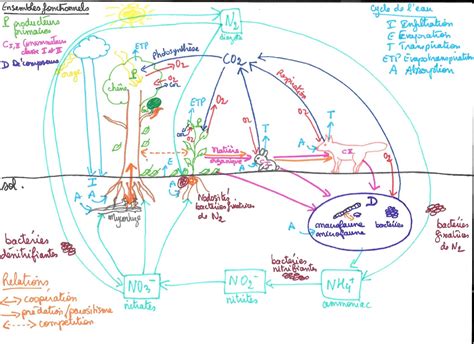 Ensembles fonctionnels
P producteurs
primaires
CI, II Consommateurs
classe I et II
D Décomposeurs
N2
diazote
Cycle de l'eau
I Infiltration
E Evaporation
T Transpiration
ETP Evapotranspiration
A Absorption
ETP
Photosynthèse
P
chêne
O2
CO2
O2
CO2
Respiration
ETP
O2
P
O2
O2
T
T
O2
Matière
organique
CI
CII
E
I
A
A
A
sol
Mycorhize
Nodosités
bactéries fixatrices
de N2
D
macrofaune
microfaune
bactéries
A
bactéries
fixatrices
de N2
bactéries
dénitrifiantes
bactéries
nitrifiantes
Relations
coopération
prédation/parasitisme
compétition
NO3-
nitrates
NO2-
nitrites
NH4+
ammoniac